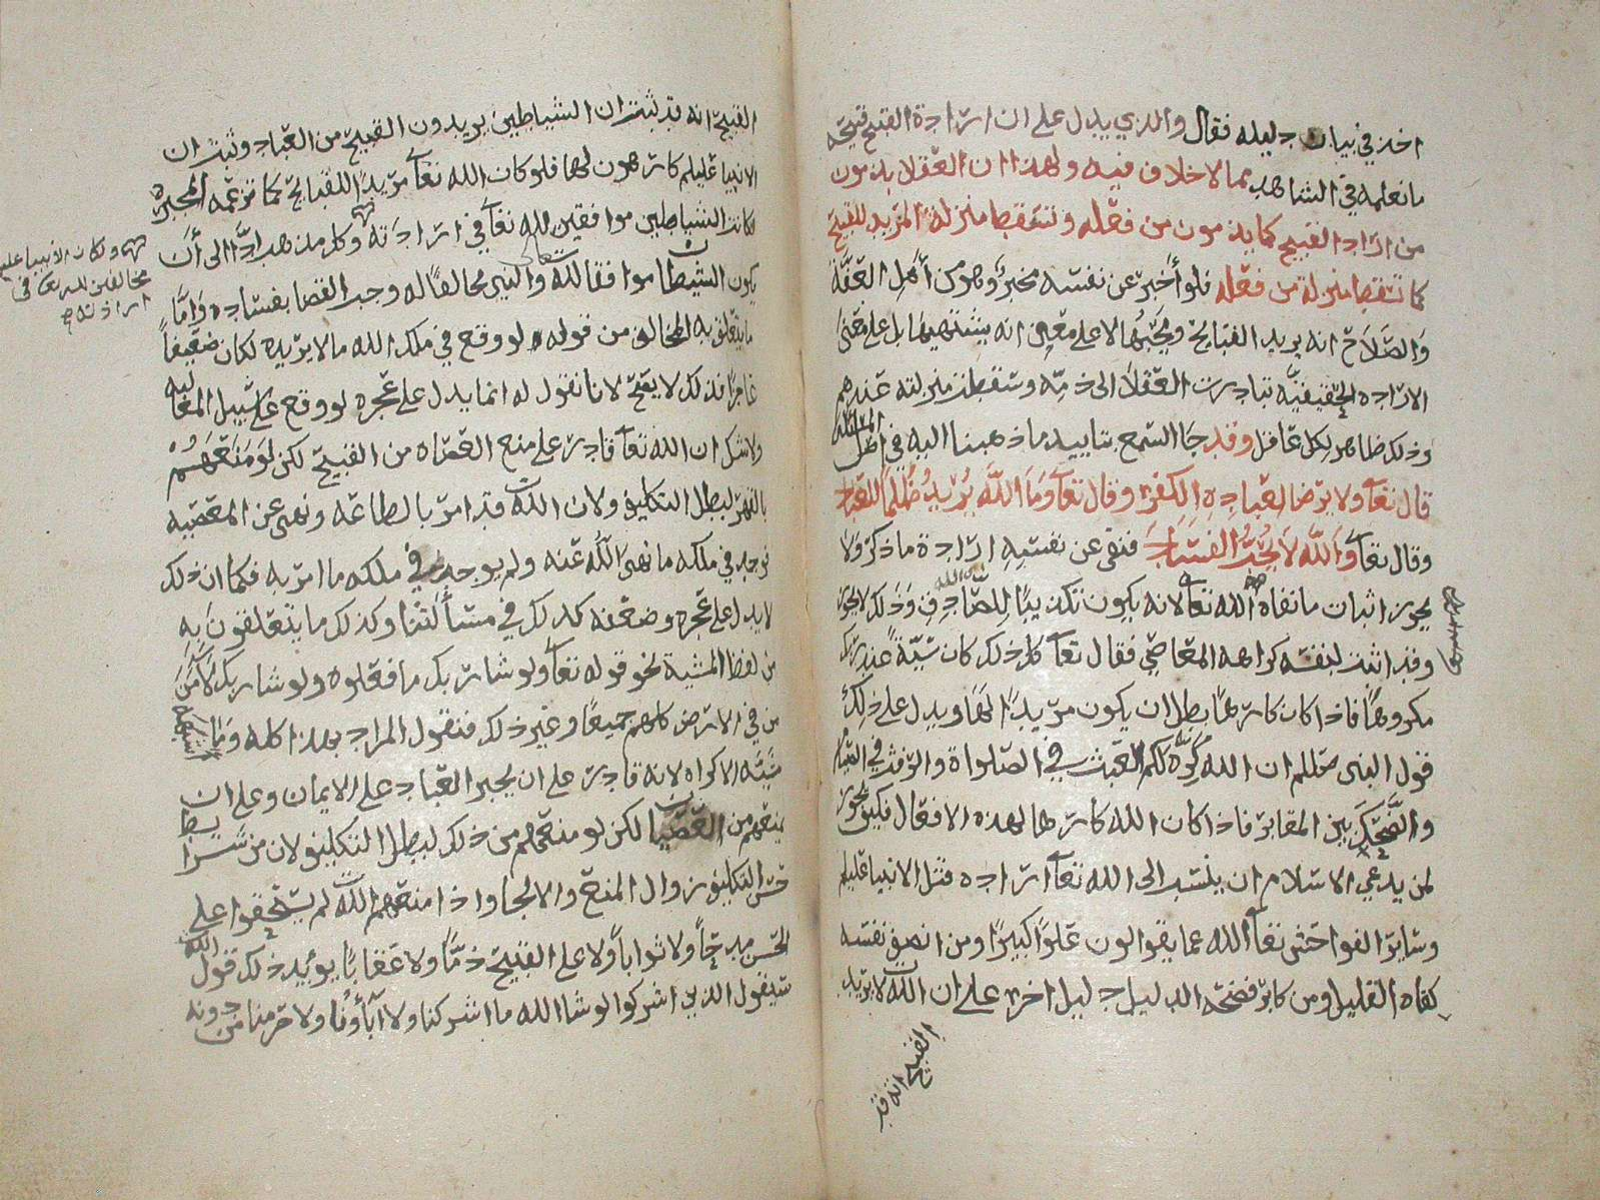 اخذ في بيان دليله فقال والذي يدل على ان ارادة القبيح قبيحة
ما نعلمه في الشاهد مما لا خلاف فيه ولهذا ان العقلا يذمون
من اراد القبيح كما يذمون من فعله وتسقط منزلة المريد للقبيح
كما تسقط منزلة من فعله فلو أخبر عن نفسه مخبر وهو من أهل العفة
والصلاح انه يريد القبايح ويحبها لا على معنى انه يشتهيها بل على معنى
الارادة الحقيقيه تبادرت العقلا الى ذمه وسقطت منزلته عندهم
وذلك ظاهر لكل عاقل وقد جا السمع بتاييد ما ذهبنا اليه في اصل المسئلة
قال تعا ولا يرضا لعباده الكفر وقال تعا وَمَا اللَّه يُريدُ ظُلماً للعباد
وقال تعا واللَّه لا يُحِبُّ الفساد فنفى عن نفسه ارادة ما ذكر ولا
يجوز اثبات ما نفاه الله تعا لانه يكون تكذيبًا للصادق وذلك لا يجوز
وقد اثبت لنفسه كراهه المعاصي فقال تعا كل ذلك كان سيّئة عند ربك
مكروهًا فاذا كان كارهًا بطل ان يكون مريدًا لها ويدل على ذلك
قول النبى صللم ان الله كره لكم العبث في الصلواة والرفث في الصيام
والضحك بين المقابر فاذا كان الله كارها لهذه الافعال فكيف يجوز
لمن يدعي الاسلام ان ينسب الى الله تعا ارادة قتل الانبيا عليلم
وساير الفواحش تعا الله عما يقولون علوًا كبيرًا ومن انصف نفسه
كفاه القليل ومن كابر فضحه الدليل دليل اخر على ان الله لا يريد
القبيح انه قد
القبيح انه قد ثبت ان الشياطين يريدون القبيح من العباد وثبت ان
الانبيا عليلم كارهون لها فلو كان الله تعا مريدًا للقبايح كما تزعمه المجبره
لكانت الشياطين موافقين لله تعا في ارادته وكل مذهب ادّا الى أن
يكون الشيطان موافقا لله تعالى والنبي مخالفًا له وجب القضا بفساده وَامَّا
ما يتعلق به المخالف من قوله لو وقع في ملك الله ما لا يريده لكان ضعيفاً
عاجزًا فذلك لا يصح لانا نقول له انما يدل على عجره لو وقع على سبيل المغالبه
ولا شك ان الله تعا قادر على منع العصاه من القبيح لكن لو منعهم
بالقهر لبطل التكليف ولان الله قد امر بالطاعه ونهى عن المعصيه
فوجد في ملكه ما نهى الله عنه ولم يوجد في ملكه ما امر به فكما ان ذلك
لا يدل على عجره وضعفه كذلك في مسألتنا وكذلك ما يتعلقون به
من لفظ المشية نحو قوله تعا ولو شا ربك ما فعلوه ولو شا ربك لآمَنَ
من في الارض كلهم جميعًا وغير ذلك فنقول المراد بهذا كله وما
مشيّه الاكراه لانه قادر على ان يجبر العباد على الايمان وعلى ان
يمنعهم من العصيان لكن لو منعهم من ذلك لبطل التكليف لان من شرايط
حسن التكليف زوال المنع والالجا واذا منعهم الله لم يستحقوا على
الحسن مدحاً ولا ثواباً ولا على القبيح ذمًّا ولا عقابًا يؤيد ذلك قول الله
سيقول الذين اشركوا لو شا الله ما اشركنا ولا آباؤنا ولا حرمنا من دونه
ولكان الانبيا عليلم
مخالفين لله تعا في
ارادته